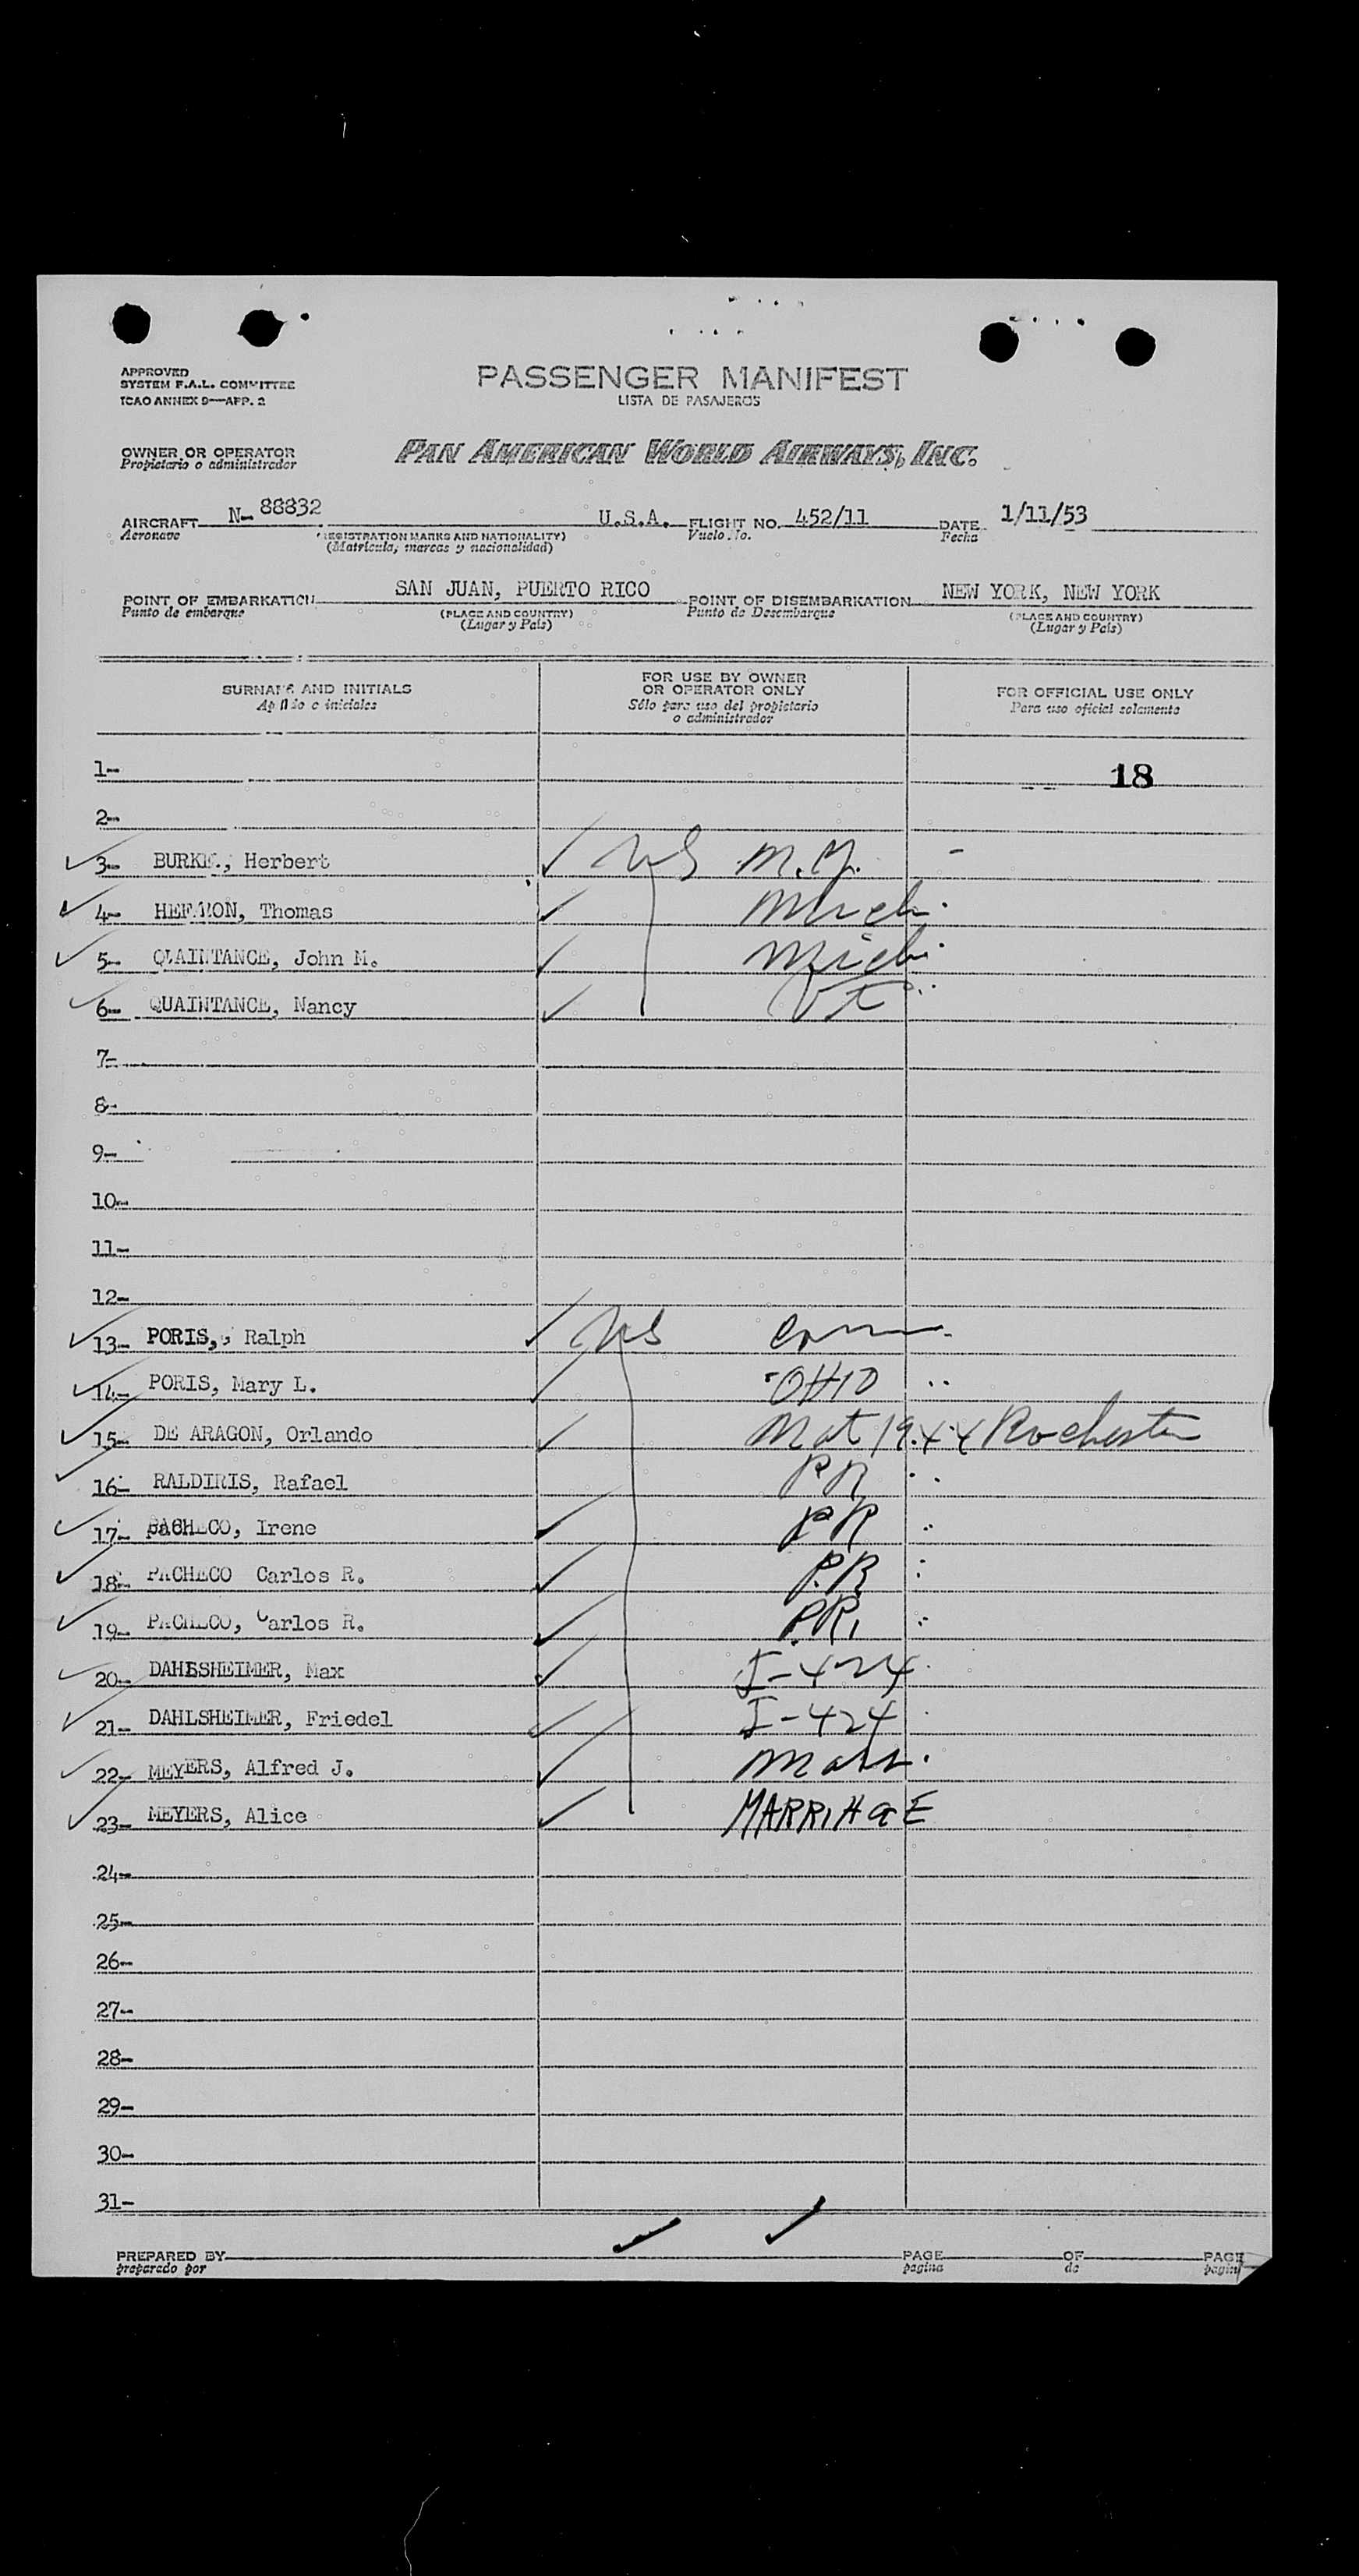 APPROVED
SYSTEM F.A.L. COMMITTEE
ICAO ANNEX 9—APP. 2
PASSENGER MANIFEST
LISTA DE PASAJEROS
OWNER OR OPERATOR
Propietario o administrador
PAN AMERICAN WORLD AIRWAYS, INC.
AIRCRAFT N- 88832 U.S.A. FLIGHT NO. 452/11 DATE 1/11/53
Aeronave (REGISTRATION MARKS AND NATIONALITY) Vuelo No. Fecha
(Matricula, marcas y nacionalidad)
POINT OF EMBARKATION SAN JUAN, PUERTO RICO POINT OF DISEMBARKATION NEW YORK, NEW YORK
Punto de embarque (PLACE AND COUNTRY) Punto de Desembarque (PLACE AND COUNTRY)
(Lugar y País) (Lugar y País)
SURNAME AND INITIALS
Apellido e iniciales
FOR USE BY OWNER
OR OPERATOR ONLY
Sólo para uso del propietario
o administrador
FOR OFFICIAL USE ONLY
Para uso oficial solamente
1- 18
2-
3- BURKE, Herbert US N.Y. -
4- Thomas Mich.
5- QUAINTANCE, John M. Mich.
6- QUAINTANCE, Nancy VT
7-
8-
9-
10-
11-
12-
13- PORIS, Ralph US Conn.
14- PORIS, Mary L. OHIO
15- DE ARAGON, Orlando Nat 1944 Rochester
16- RALDIRIS, Rafael PR
17- PACHECO, Irene PR
18- PACHECO Carlos R. P.R
19- PACHECO, Carlos R. P.R.
20- DAHLSHEIMER, Max I-424
21- DAHLSHEIMER, Friedel I-424
22- MEYERS, Alfred J. Mass.
23- MEYERS, Alice MARRIAGE
24-
25-
26-
27-
28-
29-
30-
31-
PREPARED BY PAGE OF PAGE
preparado por pagina de